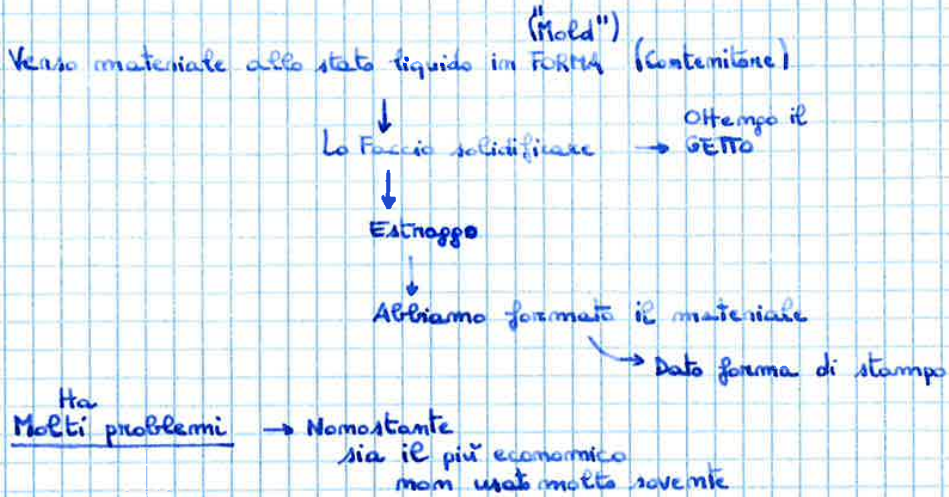 ("Mold")
Verso materiale allo stato liquido in FORMA (Contenitore)
↓
Lo Faccio solidificare → Ottengo il GETTO
↓
Estraggo
↓
Abbiamo formato il materiale
→ Dato forma di stampo
Ha
Molti problemi → Nonostante
sia il più economico
non usato molto sovente